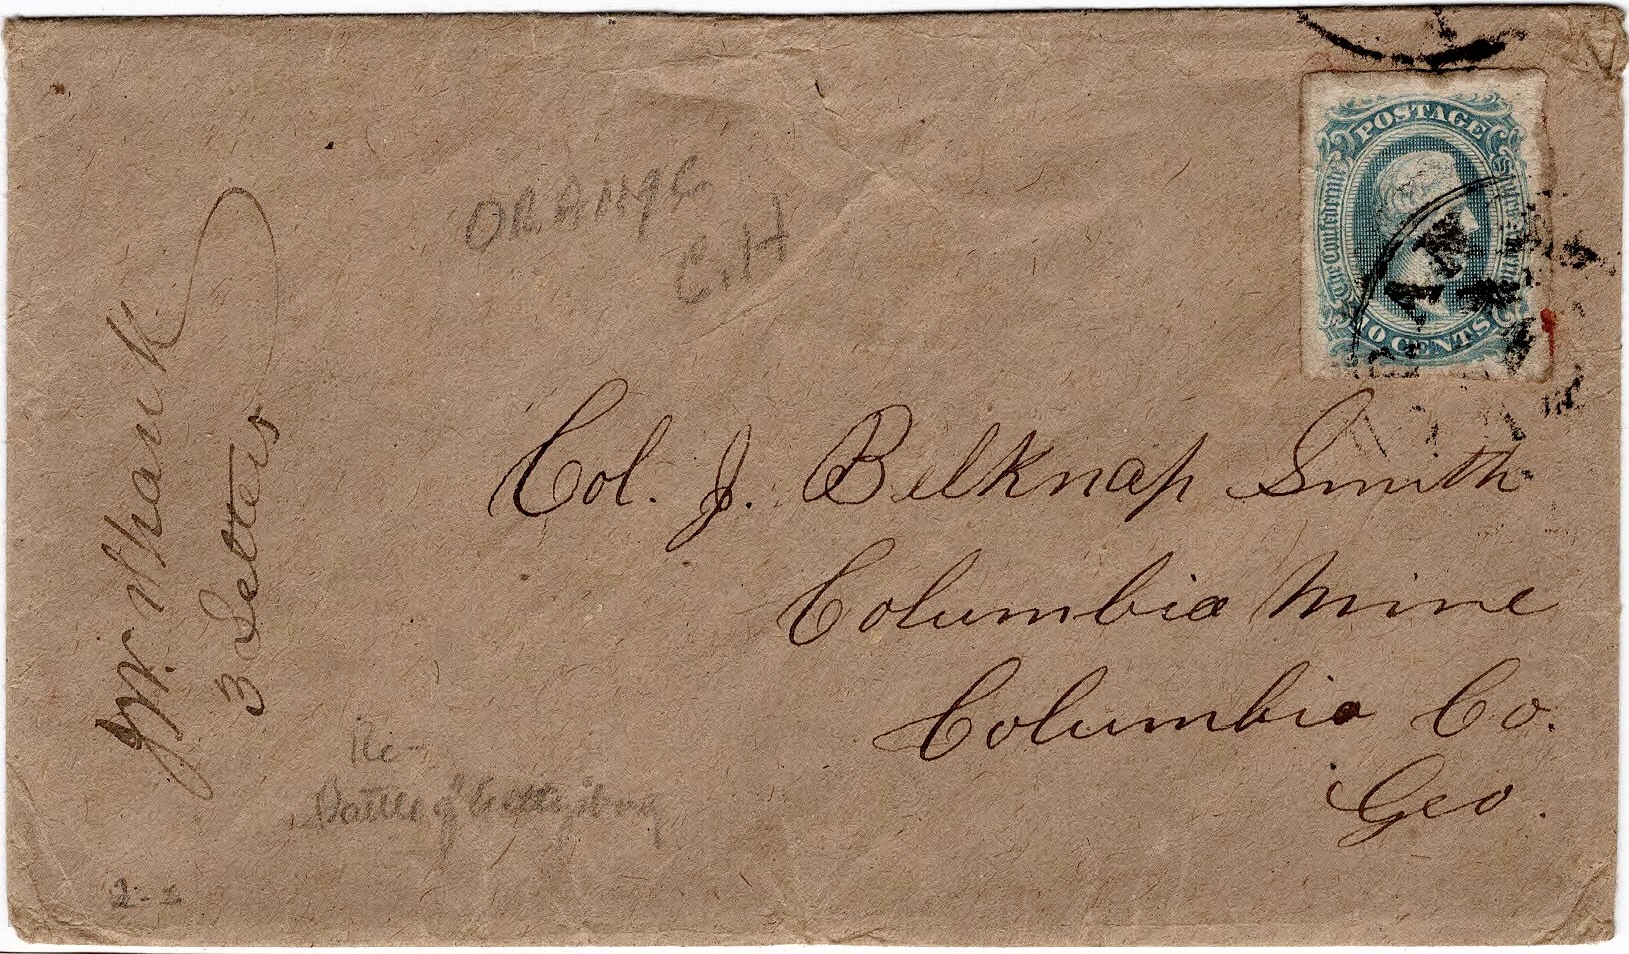 POSTAGE
The Confederate States of America
10 CENTS
ORANGE
C.H
Col. J. Belknap Smith
Columbia Mine
Columbia Co.
Geo.
3 Letters
Re-
Battle of Gettysburg
2-